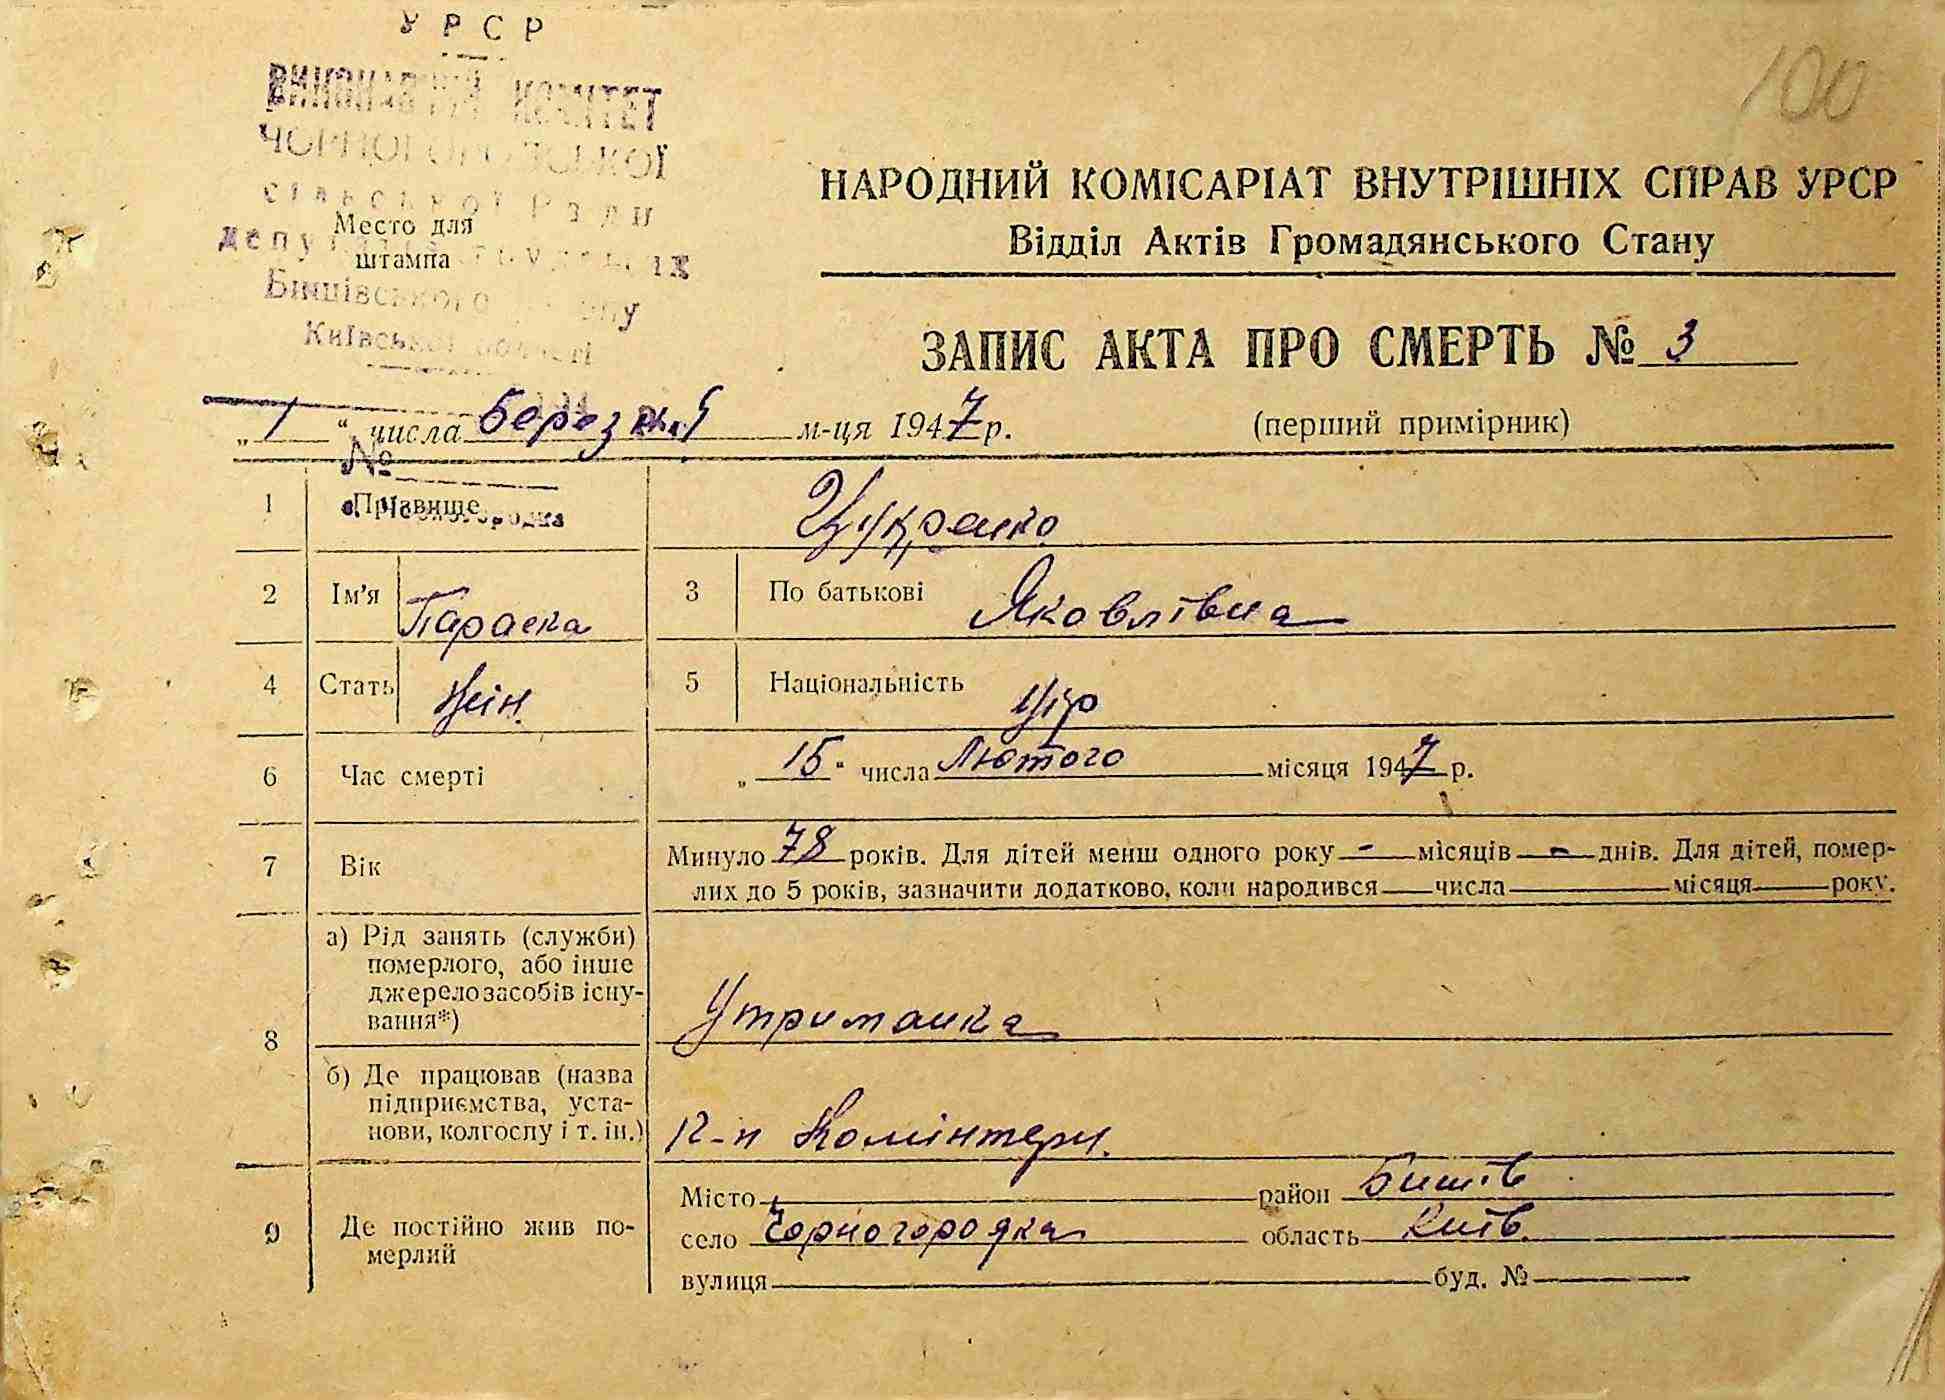 УРСР
ВИКОНАВЧИЙ КОМІТЕТ
ЧОРНОГОРОДСЬКОЇ
сільської Ради
депутатів трудящих
Бишівського району
Київської області
Место для
штампа
100
НАРОДНИЙ КОМІСАРІАТ ВНУТРІШНІХ СПРАВ УРСР
Відділ Актів Громадянського Стану
ЗАПИС АКТА ПРО СМЕРТЬ № 3
„1“ числа березня м-ця 1947 р. (перший примірник)
№
с. Чорногородка
1 Прізвище Цукренко
2 Ім'я Параска 3 По батькові Яковлівна
4 Стать жін. 5 Національність укр
6 Час смерті „15“ числа Лютого місяця 1947 р.
7 Вік Минуло 78 років. Для дітей менш одного року - місяців - днів. Для дітей, помер-
лих до 5 років, зазначити додатково, коли народився числа місяця року.
8 а) Рід занять (служби)
померлого, або інше
джерело засобів існу-
вання*) Утриманка
б) Де працював (назва
підприємства, уста-
нови, колгоспу і т. ін.) К-п Комінтерн.
9 Де постійно жив по-
мерлий
Місто район Бишів
село Чорногородка область Київ.
вулиця буд. №